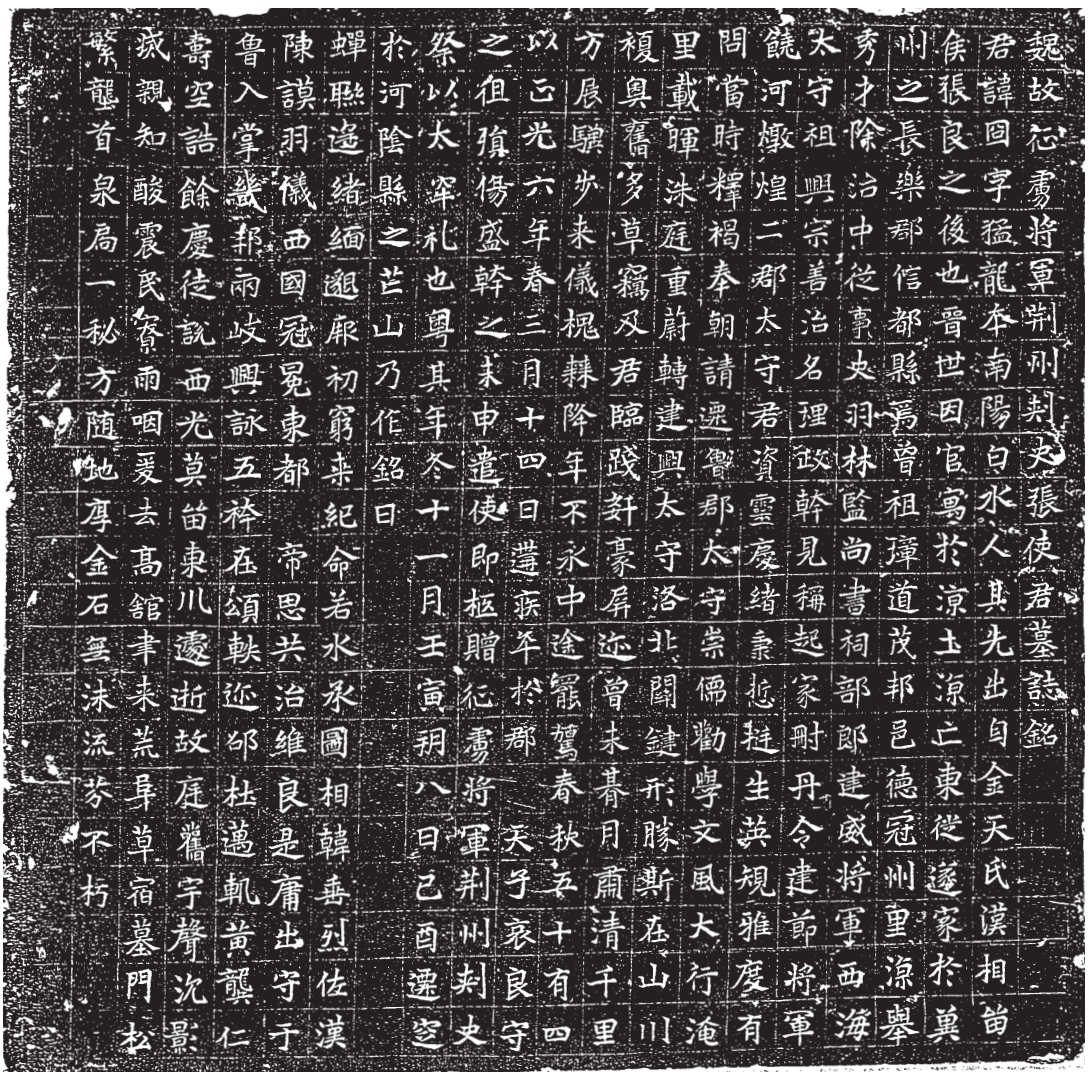 魏故征虜將軍荆州刾史張使君墓誌銘
君諱囬字猛龍夲南陽白水人其先出自金天氏漢相留
侯張良之後也晉世因官寓於涼土涼亡東從遂家於冀
州之長樂郡信都縣焉曾祖璋道茂邦邑德冠州里涼舉
秀才除治中從事史羽林監尚書祠部郎建威將軍西海
太守祖興宗善治名理政幹見稱起家刪丹令建節將軍
饒河燉煌二郡太守君資靈慶緒稟悊挺生英規雅度有
問當時釋褐奉朝請還魯郡太守崇儒勸學文風大行淹
里載暉洙庭重蔚轉建興太守洛北關鍵形勝斯在山川
複奥舊多草竊及君臨踐奸豪屏迹曾未朞月肅清千里
方展驥步来儀槐棘降年不永中途罷駕春秋五十有四
以正光六年春三月十四日遘疾卒於郡 天子哀良守
之徂殞傷盛幹之未申遣使即柩贈征虜將軍荆州刾史
祭以太窂礼也粤其年冬十一月壬寅朔八日己酉遷窆
於河陰縣之芒山乃作銘曰
蟬聮遥緒緬邈厥初窮来紀命若水承圖相韓垂烈佐漢
陳謨羽儀西國冠冕東都 帝思共治維良是庸出守于
魯入掌畿邦兩岐興詠五袴在頌軼迹邵杜邁軌黃龔仁
壽空誥餘慶徒説西光莫留東川遽逝故庭舊宇聲沉影
滅親知酸震民寮雨咽爰去高舘聿来荒阜草宿墓門松
繁壟首泉局一秘方随地厚金石無沫流芬不朽